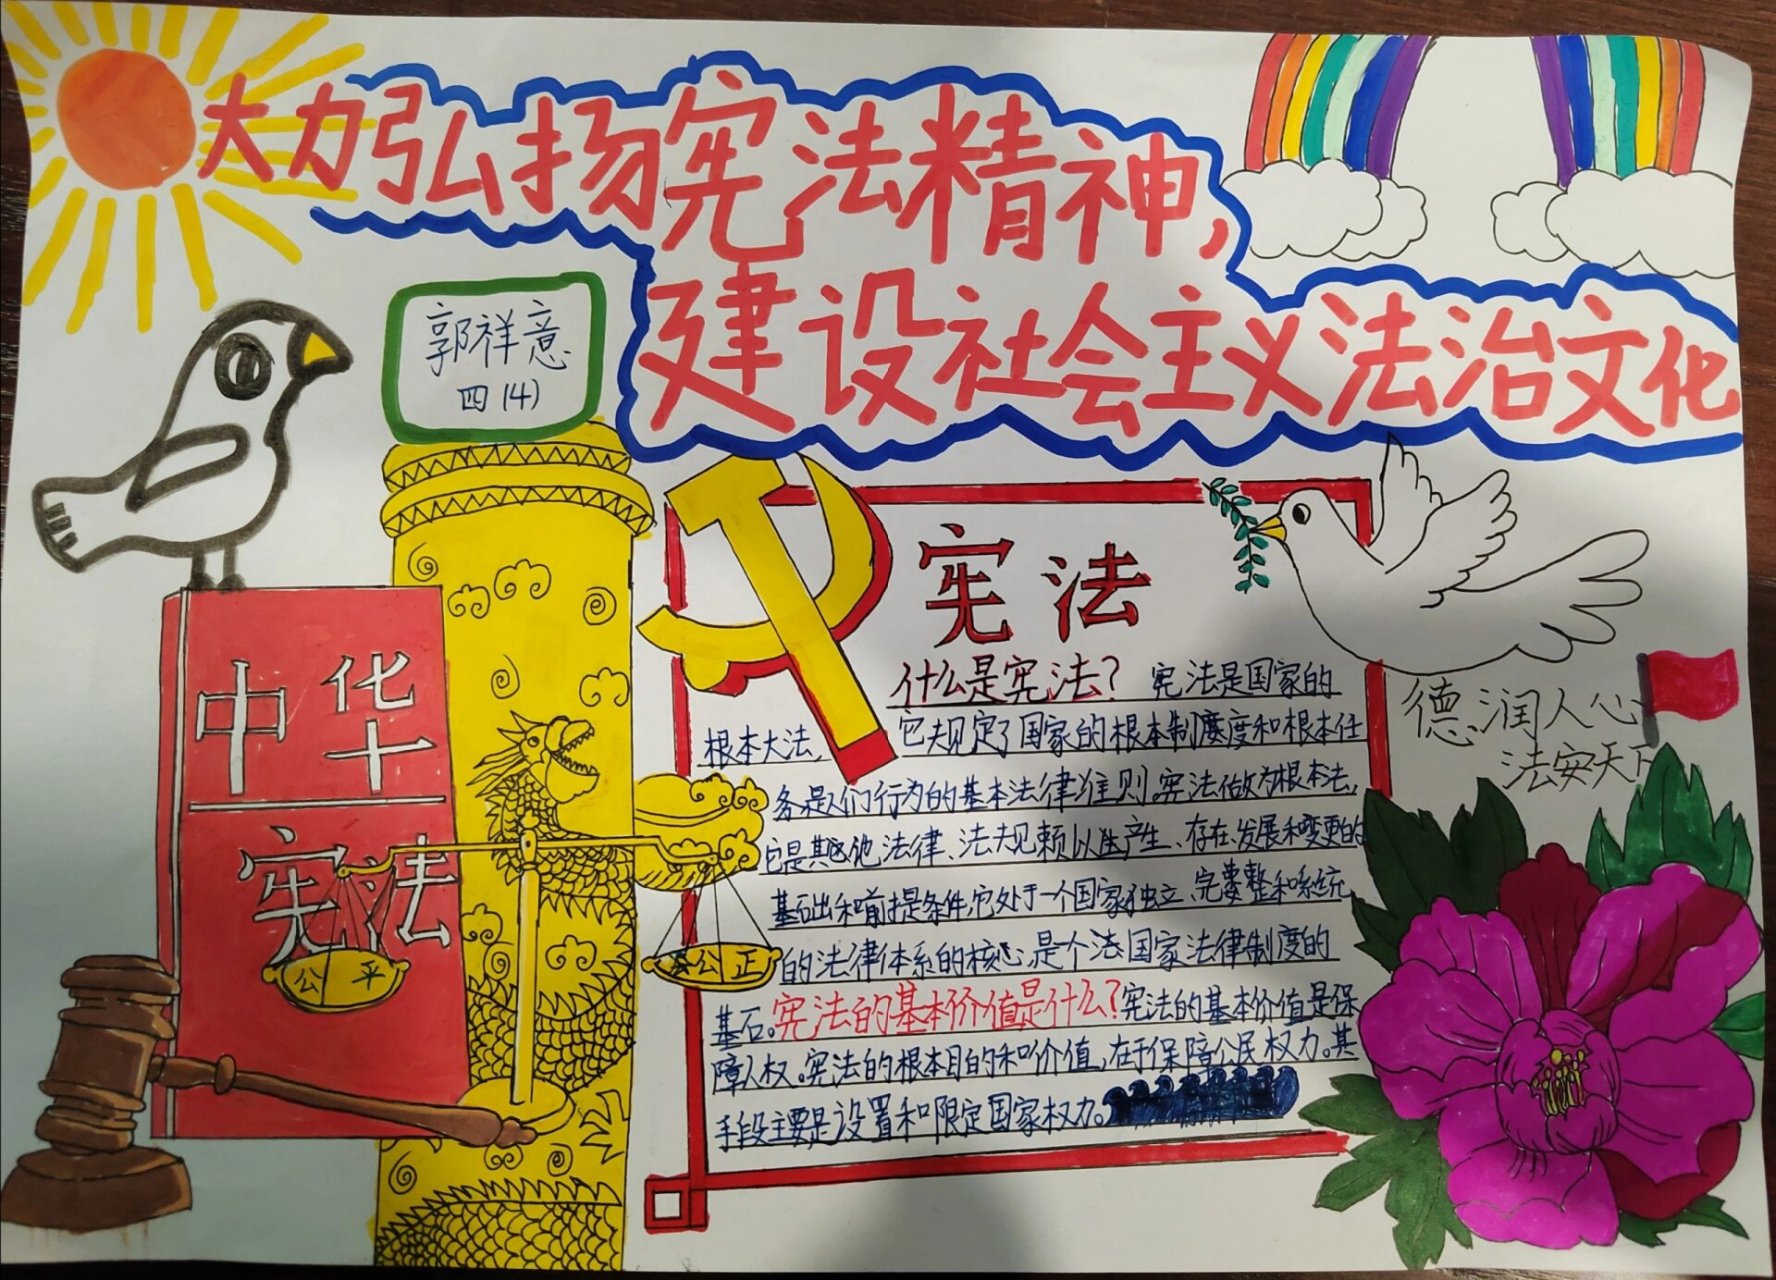 大力弘扬宪法精神,
建设社会主义法治文化
郭祥意
四(4)
中华
宪法
公平
公正
宪法
什么是宪法? 宪法是国家的
根本大法, 它规定了国家的根本制度和根本任
务是人们行为的基本法律准则。宪法做为根本法,
它是其他法律、法规赖以生产生、存在、发展和变更的
基础和前提条件,它处于一个国家独立、完整和系统
的法律体系的核心,是个法国家法律制度的
基石。宪法的基本价值是什么?宪法的基本价值是保
障人权。宪法的根本目的和价值,在于保障公民权力。其
手段主要是设置和限定国家权力。
德润人心
法安天下